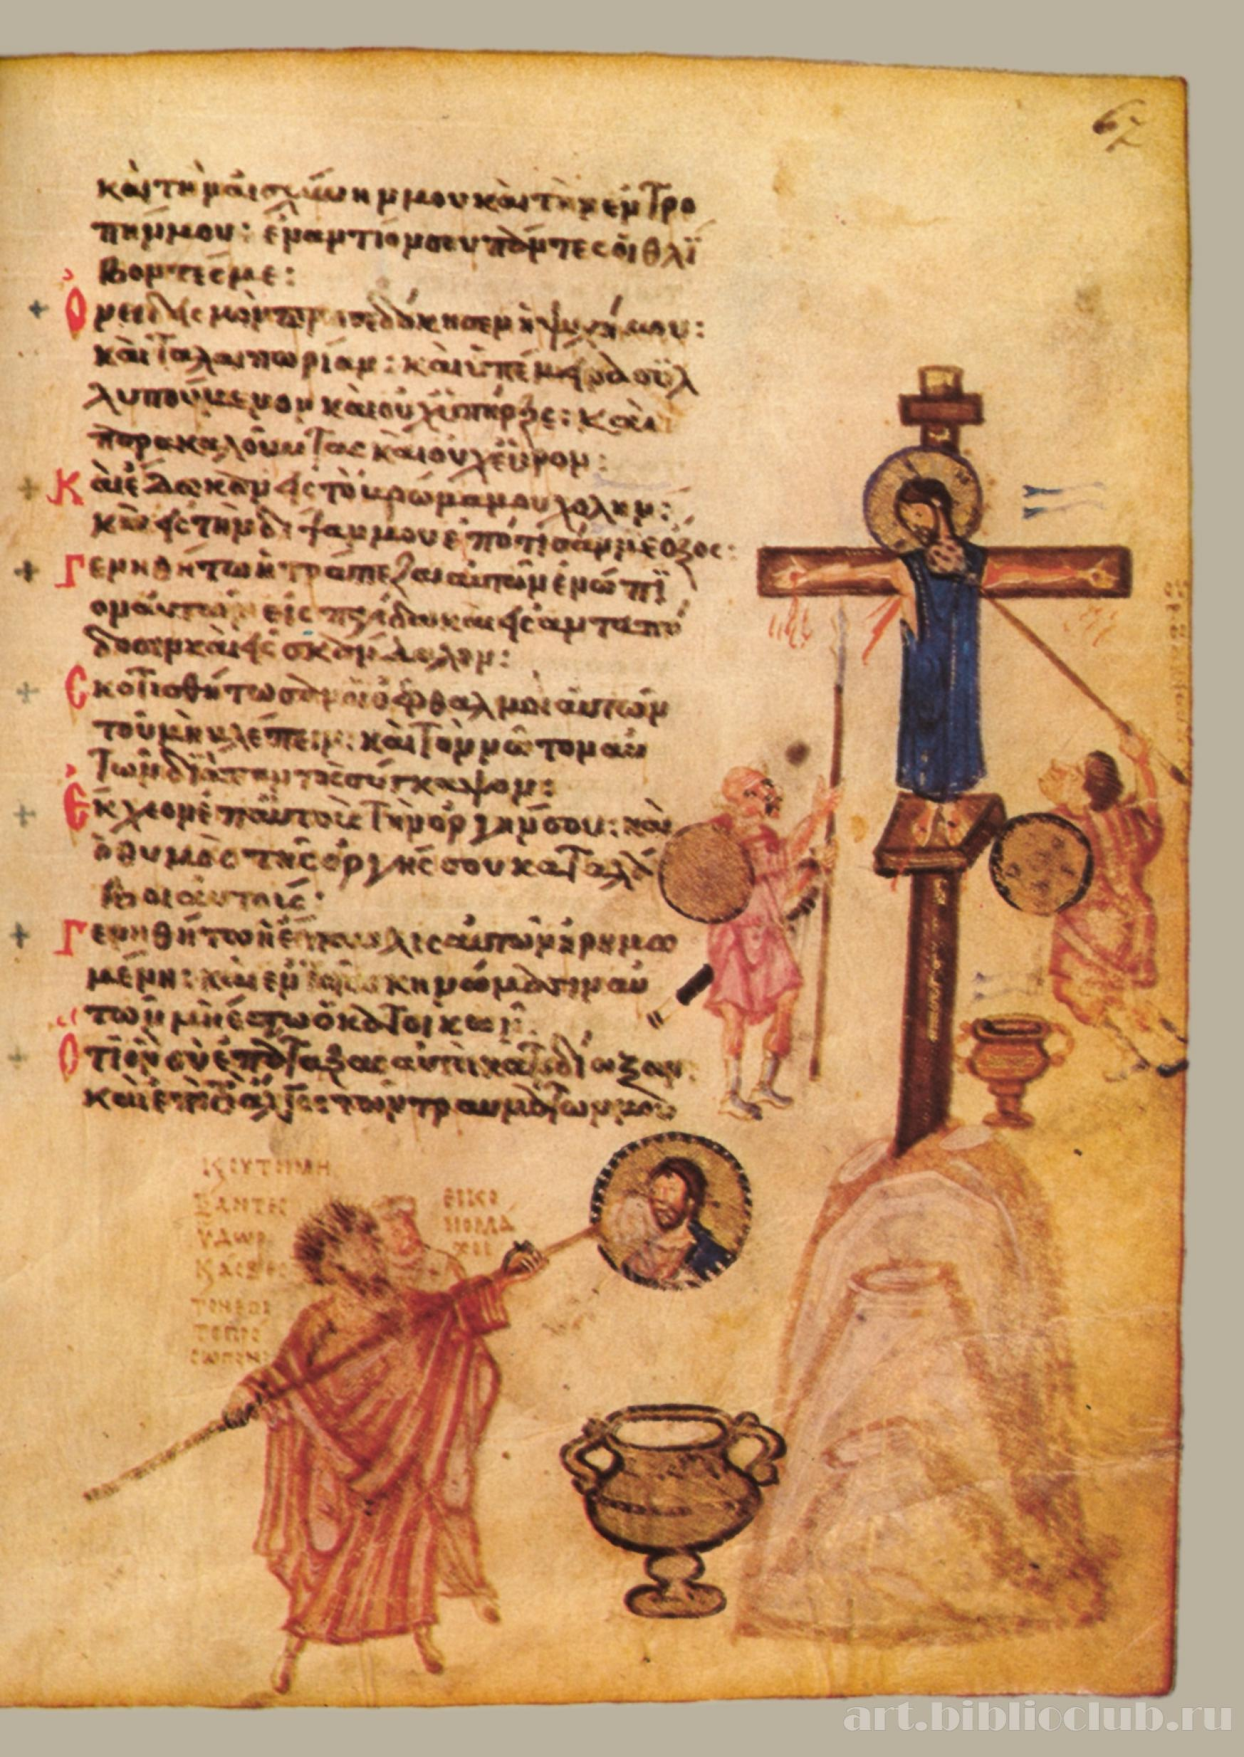 67
καὶ τὴν αἰσχύνην μου καὶ τὴν ἐντρο
πήν μου: ἐναντίον σου πάντες οἱ θλί
βοντές με:
Ὀνειδισμὸν προσεδόκησεν ἡ ψυχή μου:
καὶ ταλαιπωρίαν: καὶ ὑπέμεινα συλ
λυπούμενον καὶ οὐχ ὑπῆρξε: καὶ
παρακαλοῦντας καὶ οὐχ εὗρον:
Καὶ ἔδωκαν εἰς τὸ βρῶμα μου χολὴν:
καὶ εἰς τὴν δίψαν μου ἐπότισάν με ὄξος:
Γενηθήτω ἡ τράπεζα αὐτῶν ἐνώπι
ον αὐτῶν εἰς παγίδα καὶ εἰς ἀνταπό
δοσιν καὶ εἰς σκάνδαλον:
Σκοτισθήτωσαν οἱ ὀφθαλμοὶ αὐτῶν
τοῦ μὴ βλέπειν: καὶ τὸν νῶτον αὐ
τῶν διὰ παντὸς σύγκαψον:
Ἔκχεον ἐπ' αὐτοὺς τὴν ὀργήν σου: καὶ
ὁ θυμὸς τῆς ὀργῆς σου καταλά
βοι αὐτούς:
Γενηθήτω ἡ ἔπαυλις αὐτῶν ἠρημω
μένη: καὶ ἐν τοῖς σκηνώμασιν αὐ
τῶν μὴ ἔστω ὁ κατοικῶν:
Ὅτι ὃν σὺ ἐπάταξας αὐτοὶ κατεδίωξαν:
καὶ ἐπὶ τὸ ἄλγος τῶν τραυμάτων μου
ὕδωρ
εἰκο
νομά
χοι
art.biblioclub.ru